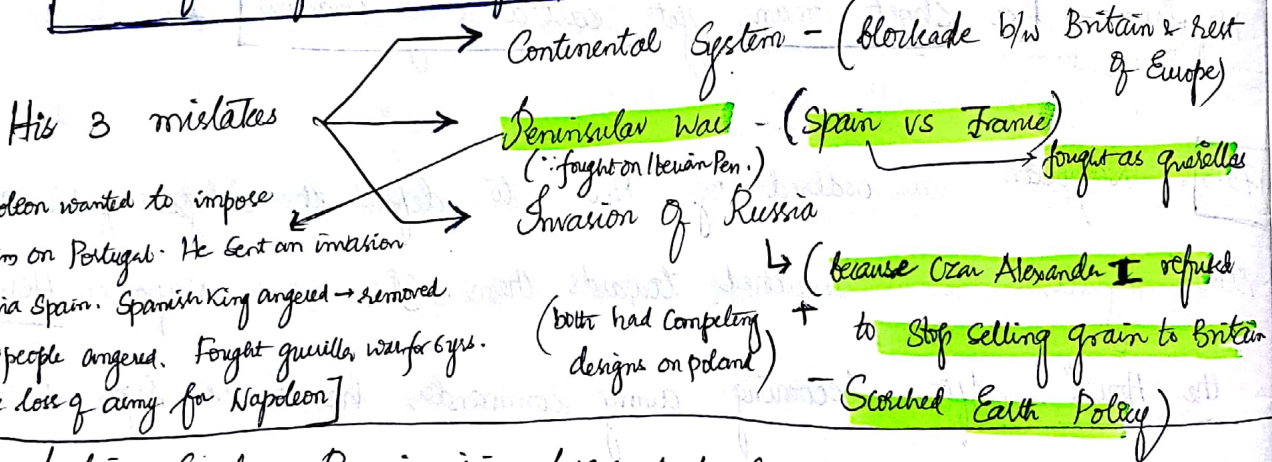 Continental System - (blockade b/w Britain & rest
of Europe)
His 3 mistakes
Peninsular War - (Spain vs France)
(∵ fought on Iberian Pen.)
fought as guerillas
Invasion of Russia
↳ (because Czar Alexander I refused
to stop selling grain to Britain
+ (both had competing
designs on poland)
- Scorched Earth Policy)
oleon wanted to impose
on Portugal. He sent an invasion
ia Spain. Spanish King angered → removed
people angered. Fought guerilla war for 6 yrs.
loss of army for Napoleon]